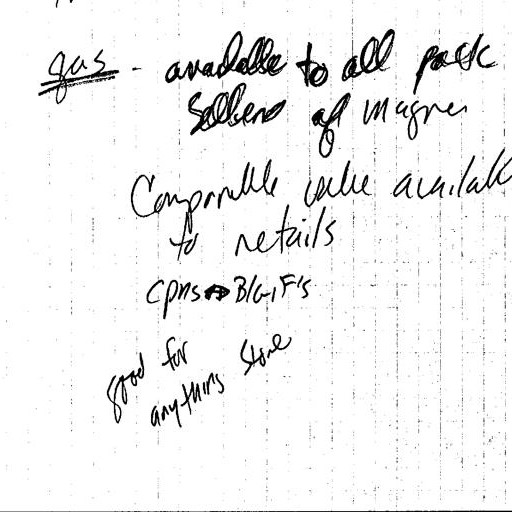 gas - available to all pack
Sellers of Magna
Comparable value availabl
to retails
cpns → B/G1F's
good for
anything store